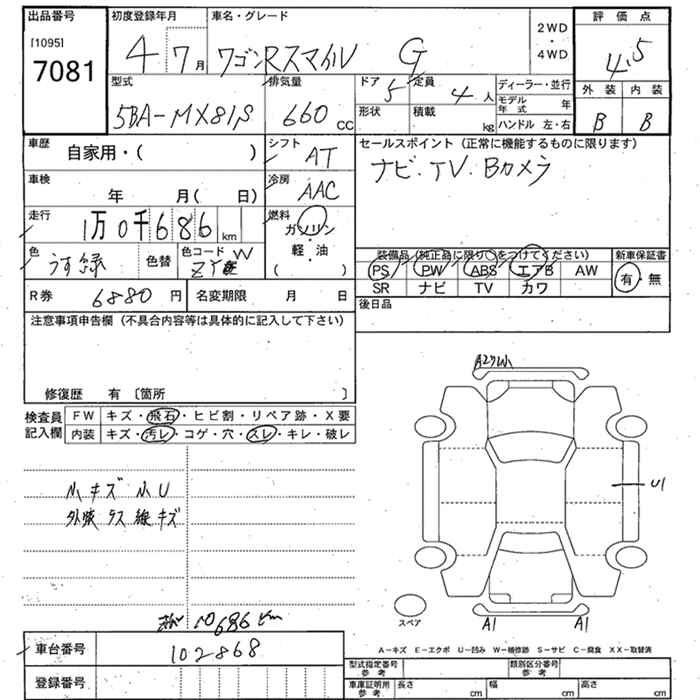 出品番号
[1095]
7081
初度登録年月
4 7 月
車名・グレード
ワゴンRスマイル G
2WD
・
4WD
評価点
4.5
外装 内装
B B
型式
5BA-MX81S
排気量
660 cc
ドア 5
形状
定員 4 人
積載 kg
ディーラー・並行
モデル年式 年
ハンドル 左・右
車歴
自家用・( )
シフト
AT
セールスポイント (正常に機能するものに限ります)
ナビ.TV.Bカメラ
車検
年 月( 日)
冷房
AAC
走行
1万0千686 km
燃料
ガソリン
・
軽・油
( )
色
うす緑
色替
色コード
装備品(純正品に限り○をつけてください)
PS PW ABS エアB AW
SR ナビ TV カワ
新車保証書
有・無
R券 6880 円
名変期限 月 日
後日品
注意事項申告欄 (不具合内容等は具体的に記入して下さい)
修復歴 有 [箇所 ]
検査員記入欄
FW キズ・飛石・ヒビ割・リペア跡・X要
内装 キズ・汚レ・コゲ・穴・スレ・キレ・破レ
小キズ 小U
外装 ウス線キズ
10686 km
U1
A1 A1
スペア
A-キズ E-エクボ U-凹み W-補修跡 S-サビ C-腐食 XX-取替済
車台番号
102868
登録番号
型式指定番号 参考
類別区分番号 参考
車庫証明用 参考
長さ cm
幅 cm
高さ cm